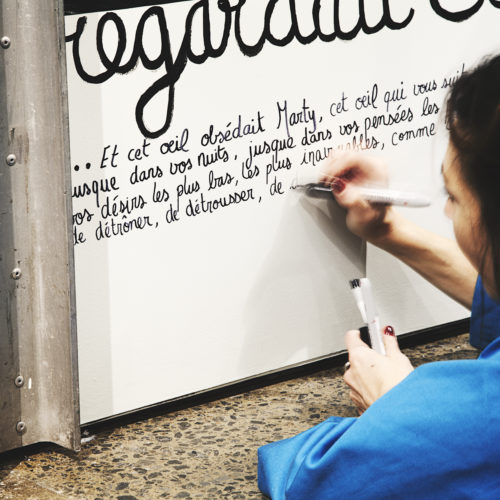 regardait
... Et cet oeil obsédait Marty, cet oeil qui vous suit
jusque dans vos nuits, jusque dans vos pensées les
vos désirs les plus bas, les plus comme
de détrôner, de détrousser, de